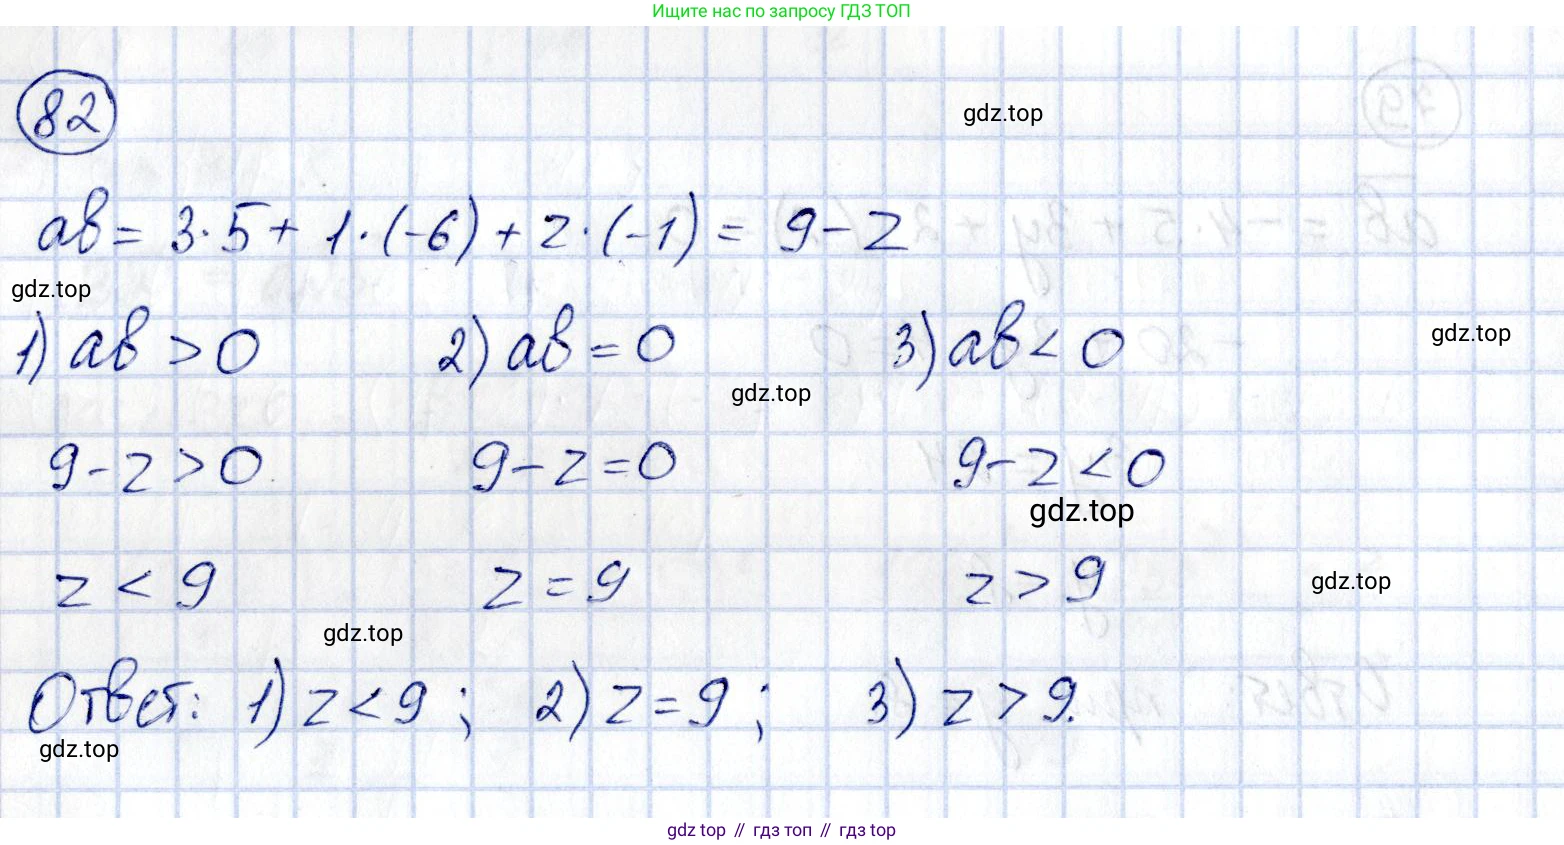 Ищите нас по запросу ГДЗ ТОП
82
gdz.top
ab = 3·5 + 1·(-6) + z·(-1) = 9 - z
gdz.top
1) ab > 0 2) ab = 0 3) ab < 0
gdz.top
gdz.top
9 - z > 0 9 - z = 0 9 - z < 0
gdz.top
z < 9 z = 9 z > 9
gdz.top
gdz.top
Ответ: 1) z < 9; 2) z = 9; 3) z > 9.
gdz.top
gdz top // гдз топ // гдз top